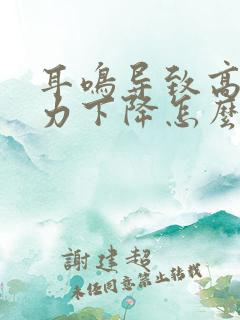 耳鸣导致高
力下降怎麽
謝建超
未经同意禁止转载